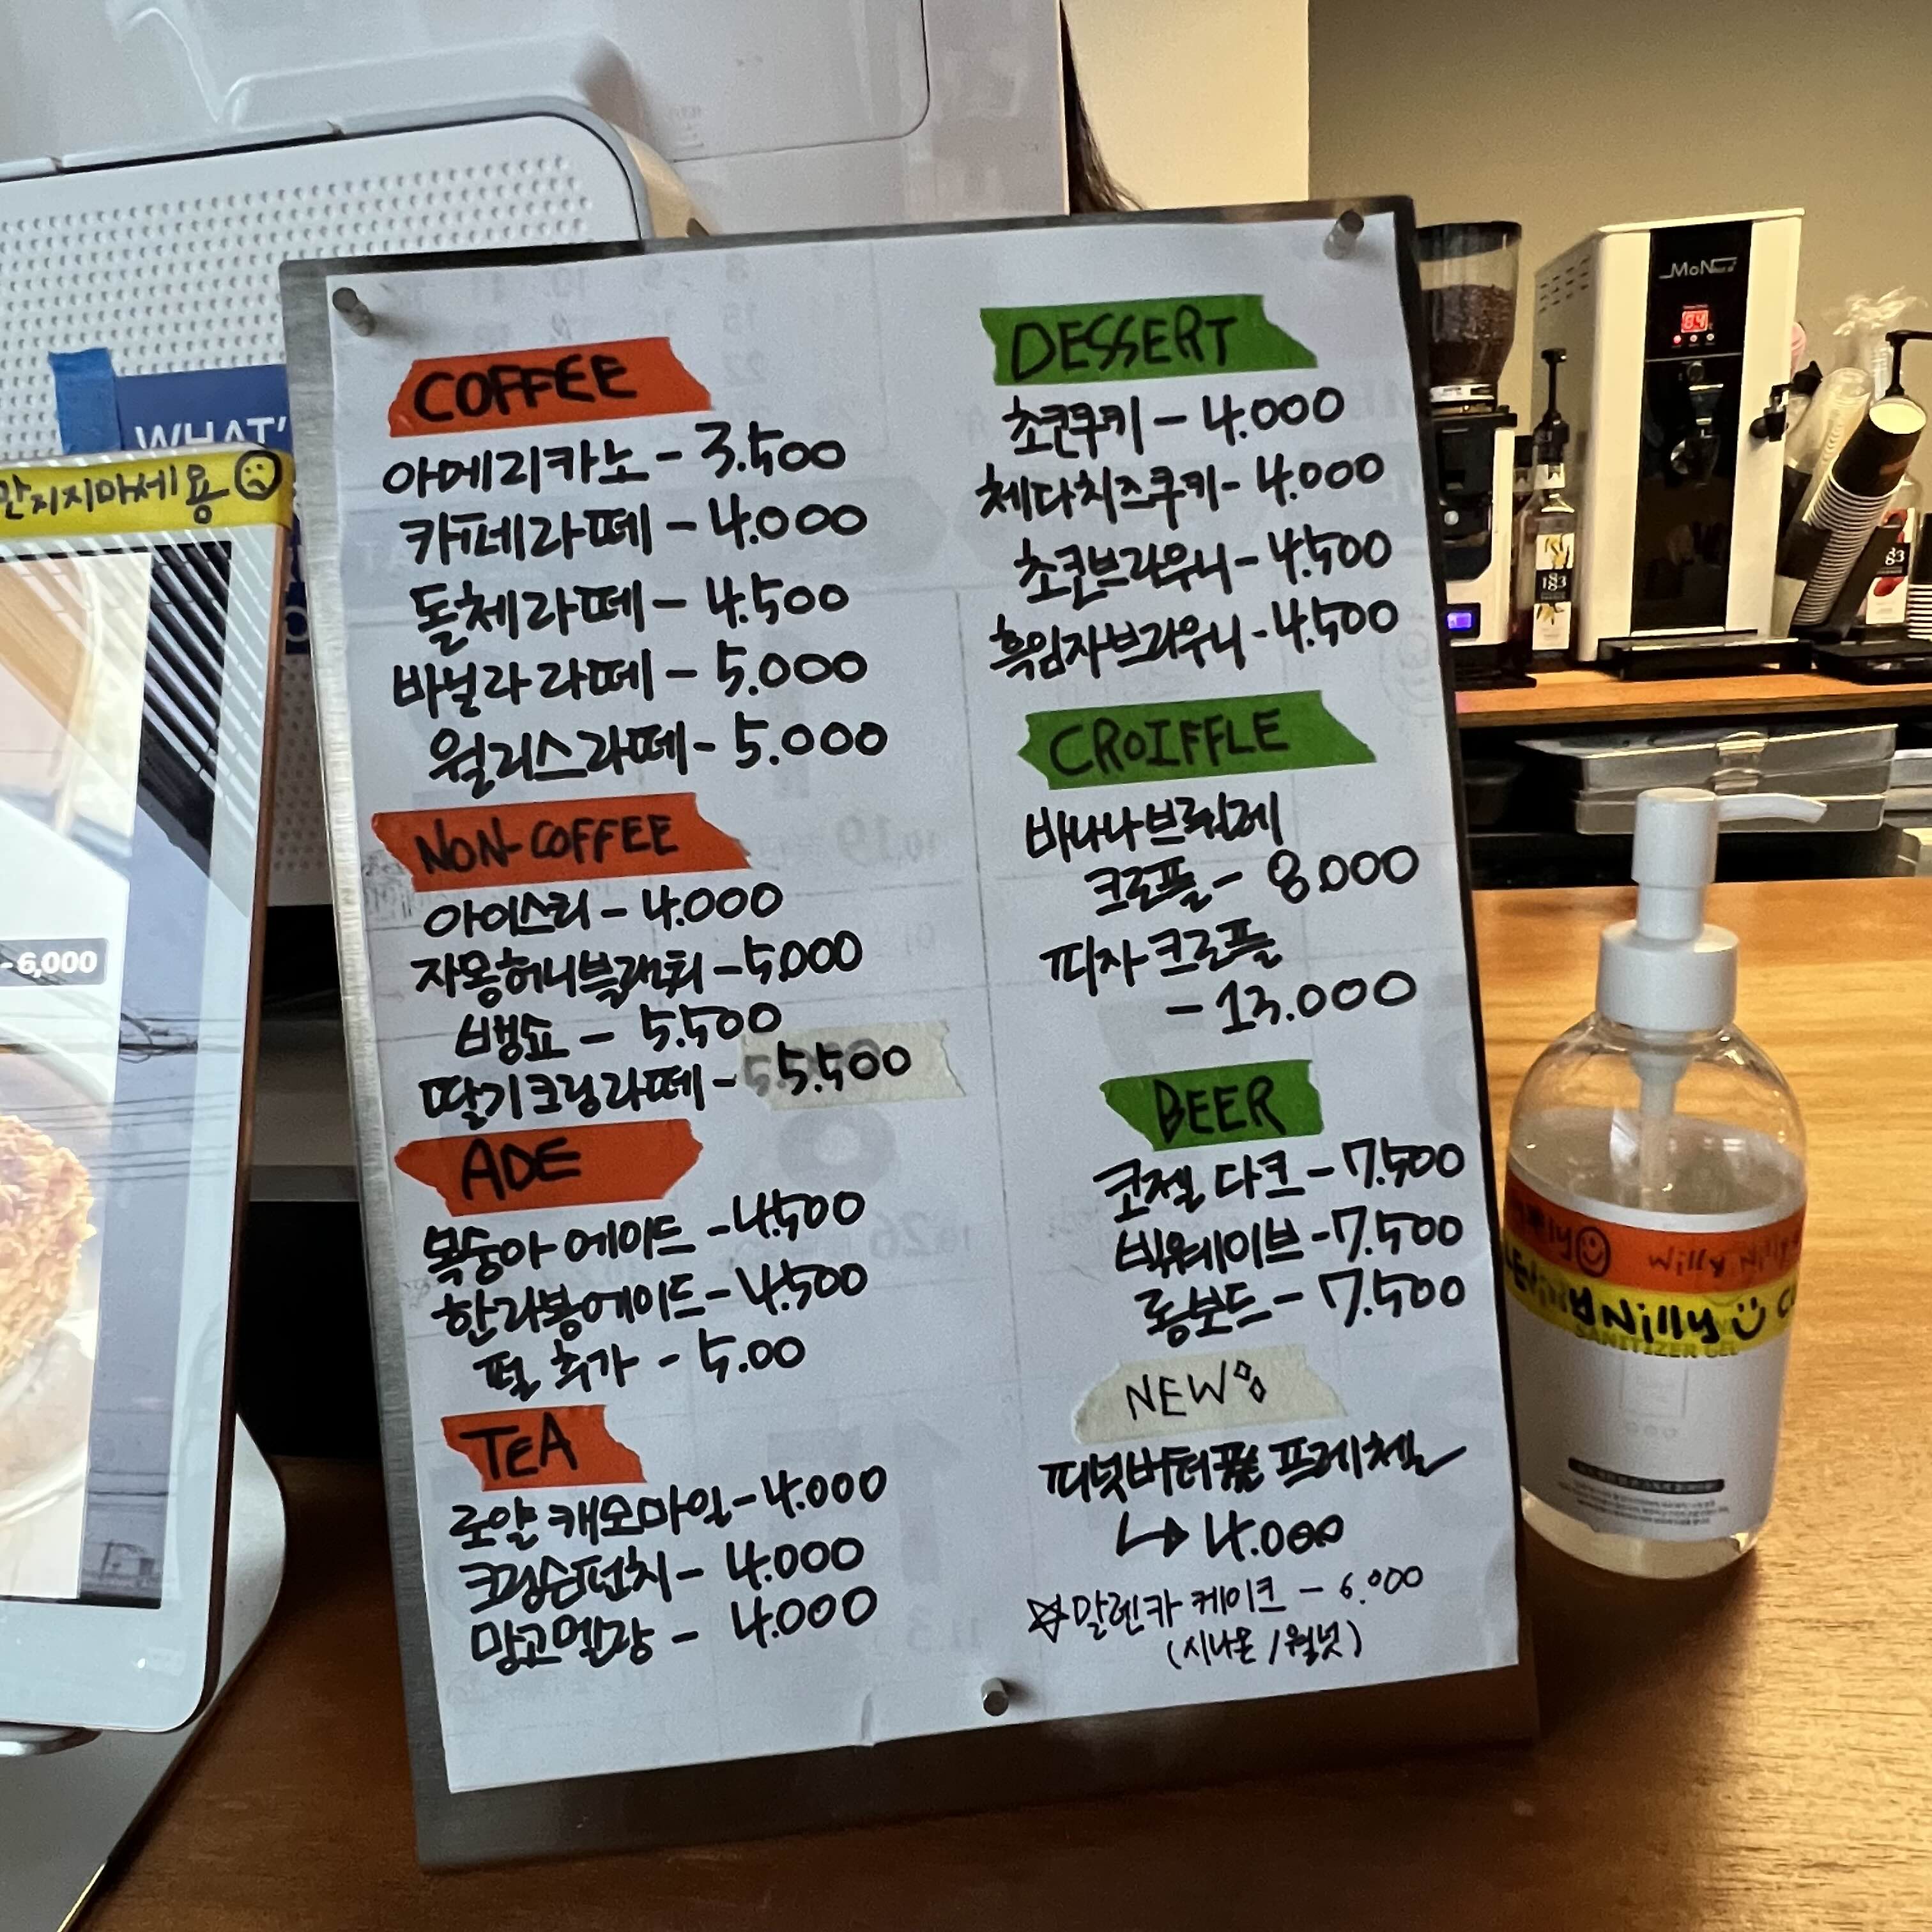 COFFEE
아메리카노 - 3.500
카페라떼 - 4.000
돌체라떼 - 4.500
바닐라 라떼 - 5.000
월리스라떼 - 5.000
NON-COFFEE
아이스티 - 4.000
자몽허니블랙티 - 5.000
뱅쇼 - 5.500
딸기크림라떼 - 5.500
ADE
복숭아 에이드 - 4.500
한라봉에이드 - 4.500
펄 추가 - 5.00
TEA
로얄 캐모마일 - 4.000
크림슨펀치 - 4.000
망고멜랑 - 4.000
DESSERT
초코쿠키 - 4.000
체다치즈쿠키 - 4.000
초코브라우니 - 4.500
흑임자브라우니 - 4.500
CROIFFLE
바나나브륄레
크로플 - 8.000
피자 크로플
- 13.000
BEER
코젤 다크 - 7.500
빅웨이브 - 7.500
롱보드 - 7.500
NEW
피넛버터 프레첼
↳ 4.000
☆ 말렌카 케이크 - 6.000
(시나몬 / 월넛)
만지지마세용
WHAT'
- 6,000
Willy Nilly
Nilly
SANITIZER GEL
183